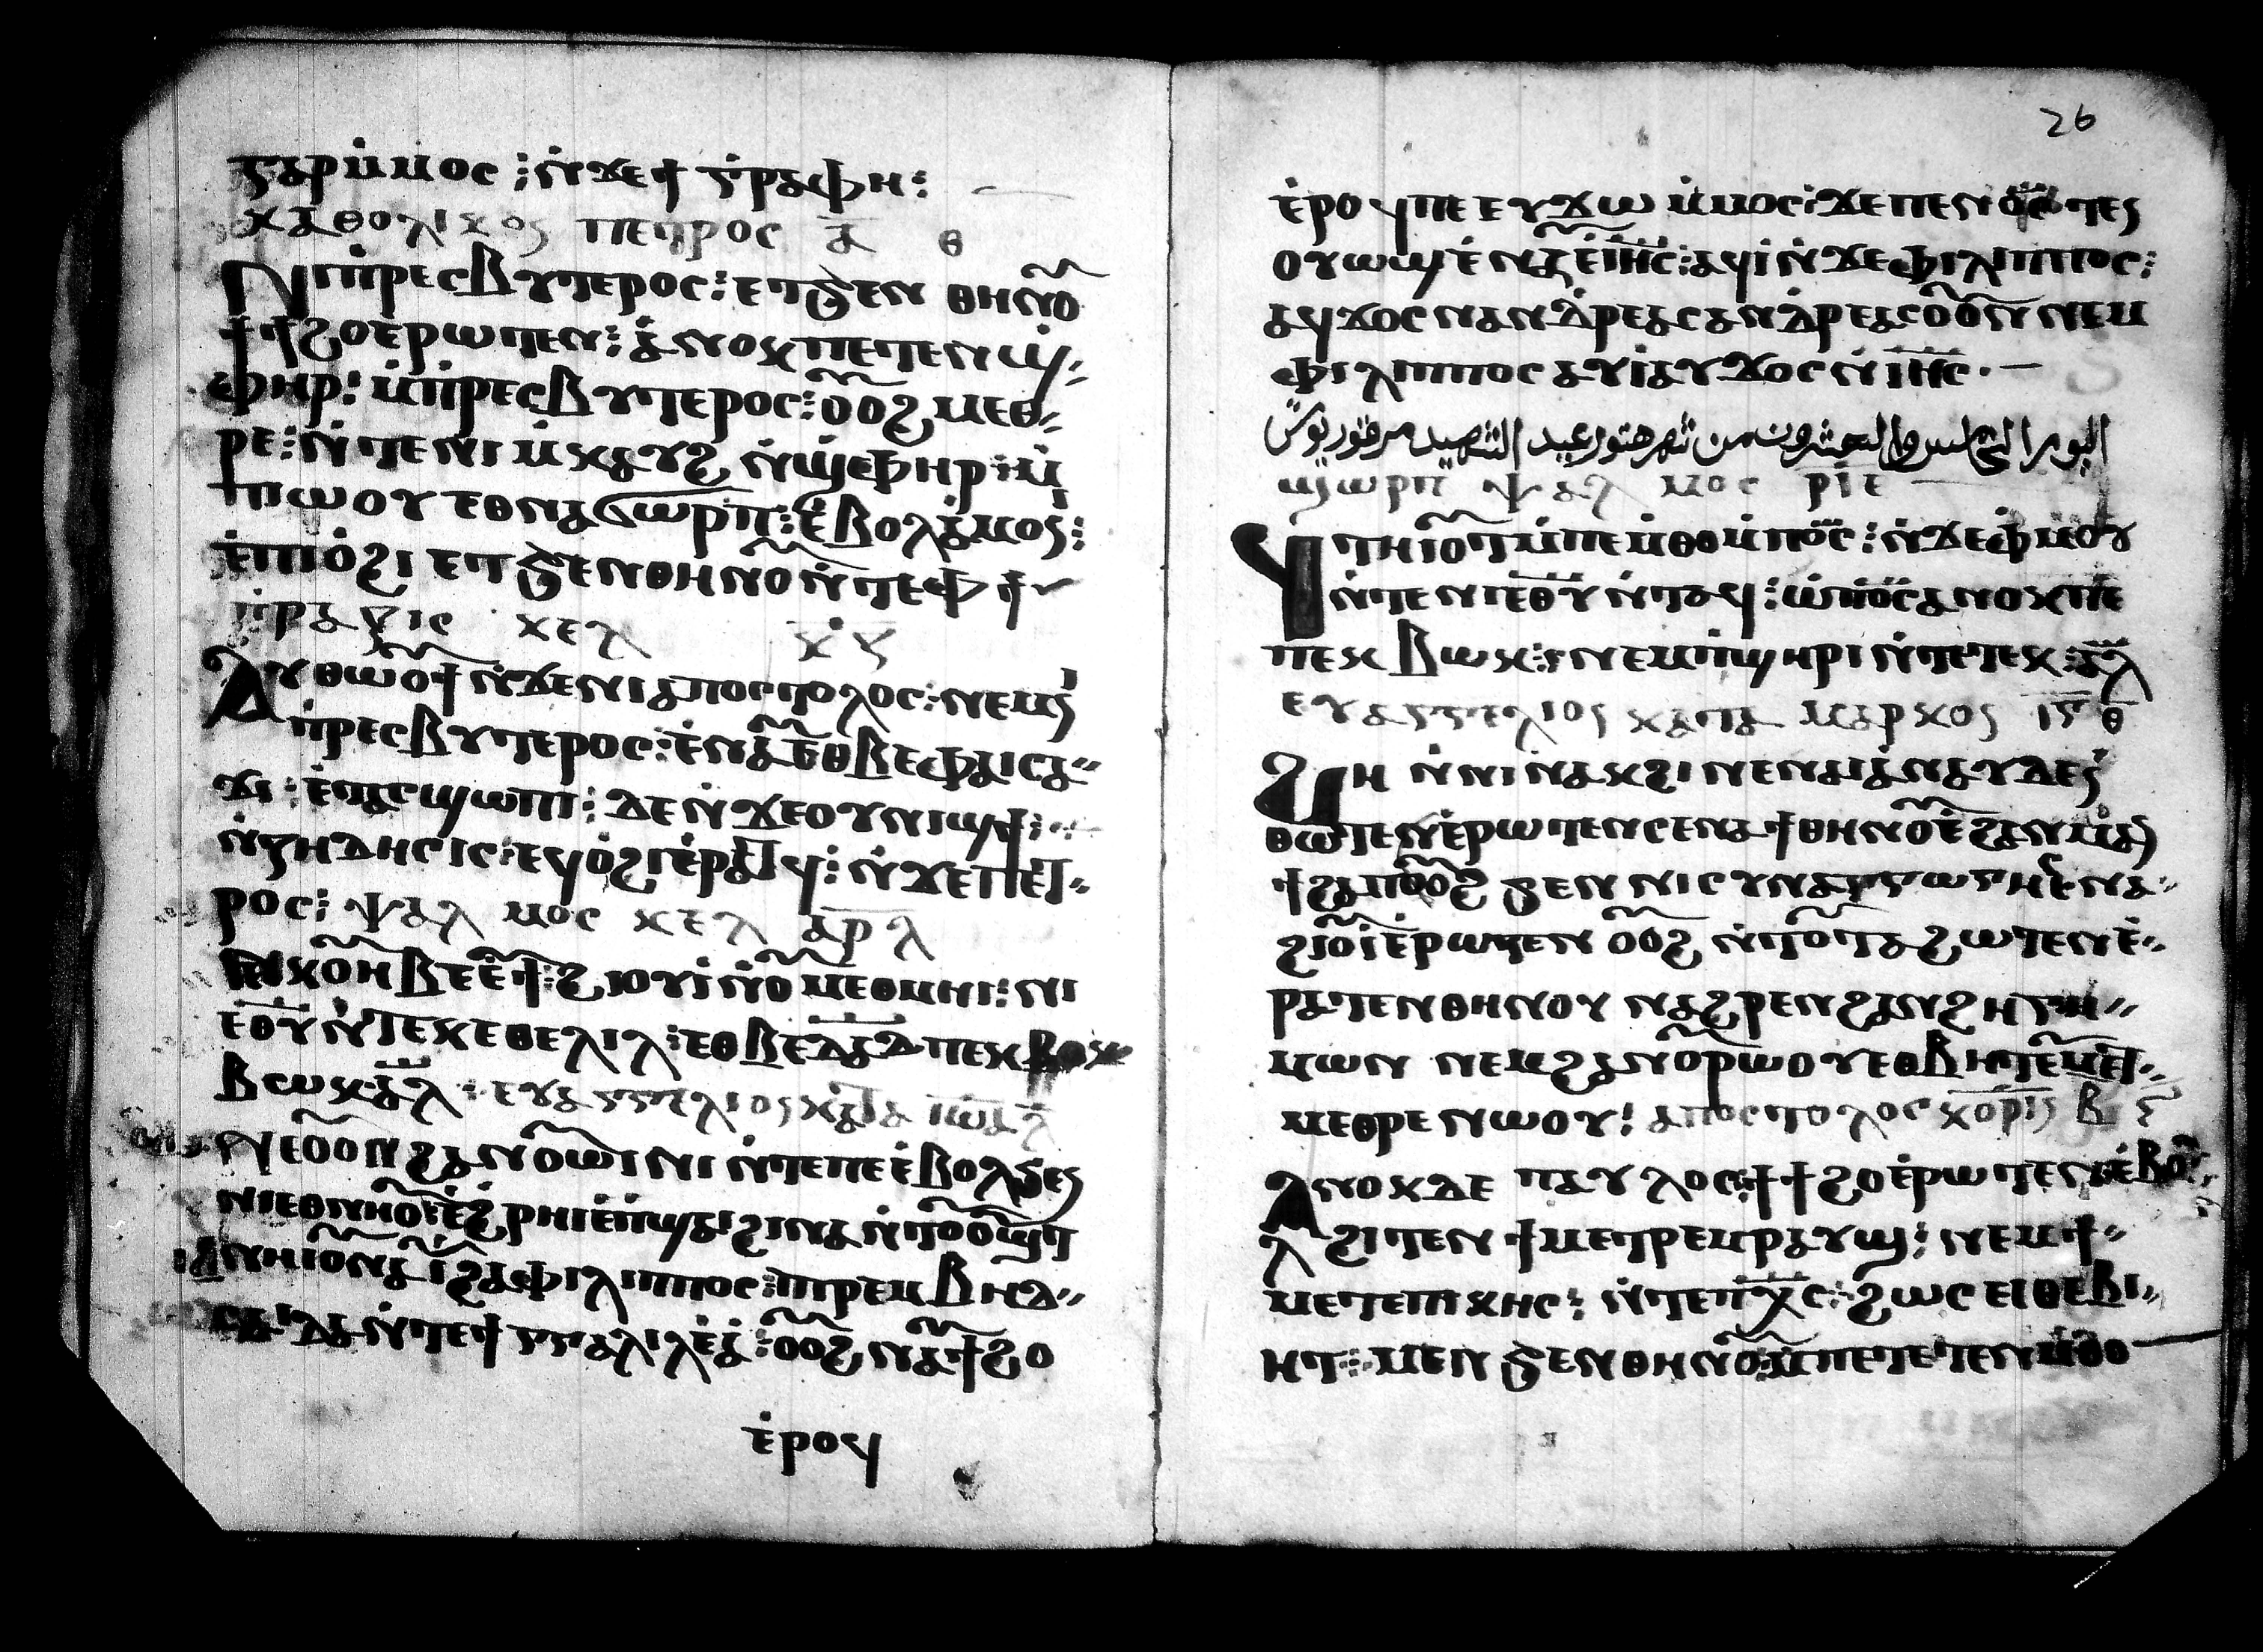 ⲅⲁⲣ ⲙ̇ⲙⲟⲥ : ⲛ̇ϫⲉϯ ⲅ̇ⲣⲁⲫⲏ :
ⲕⲁⲑⲟⲗⲓⲕⲟⲥ ⲡⲉⲧⲣⲟⲥ ⲁ̅ ⲑ
Ⲛⲓⲡ̇ⲣⲉⲥⲃⲩⲧⲉⲣⲟⲥ : ⲉⲧϧⲉⲛ ⲑⲏⲛⲟ̅
ϯϯϩⲟ ⲉⲣⲱⲧⲉⲛ : ⲁ̇ⲛⲟⲕ ⲡⲉⲧⲉⲛϣ̇
ⲫⲏⲣ : ⲙ̇ⲡ̇ⲣⲉⲥⲃⲩⲧⲉⲣⲟⲥ : ⲟ̅ⲟϩ ⲙⲉⲑ
ⲣⲉ : ⲛ̇ⲧⲉ ⲛⲓⲙ̇ⲕⲁⲩϩ ⲛ̇ϣ̇ⲫⲏⲣ : ⲙ̇
ⲡⲱⲟⲩ ⲉⲑⲛⲁϭⲱⲣⲡ : ⲉ̇ⲃⲟⲗ ⲁ̇ⲙⲟⲛⲓ :
ⲉ̇ⲡⲓⲟ̇ϩⲓ ⲉⲧϧⲉⲛ ⲑⲏⲛⲟ̅ ⲛ̇ⲧⲉ ⲫϯ
ⲡ̇ⲣⲁⲝⲓⲥ ⲕⲉⲗ
Ⲁⲩⲑⲱⲟ̅ϯ ⲛ̇ϫⲉ ⲛⲓⲁⲡⲟⲥⲧⲟⲗⲟⲥ : ⲛⲉⲙ ⲛⲓ
ⲡ̇ⲣⲉⲥⲃⲩⲧⲉⲣⲟⲥ : ⲉ̇ⲛⲁⲩ ⲉⲑⲃⲉ ⲫⲁⲓⲥⲁ
ϫⲓ : ⲉ̇ⲧⲁⲥϣⲱⲡⲓ : ⲇⲉ ⲛ̇ϫⲉ ⲟⲩⲛⲓϣϯ :
ⲛ̇ⲍⲏⲇⲏⲥⲓⲥ : ⲉϥⲟ̇ϩⲓ ⲉ̇ⲣⲁⲧϥ : ⲛ̇ϫⲉ ⲡⲉⲧ
ⲣⲟⲥ : ⲯⲁⲗⲙⲟⲥ ⲕⲉⲗ ⲁ̅ⲣ̅ⲗ̅
ⲛⲉⲕⲟ̅ⲏⲃ ⲉⲉ̇ϯ ϩⲓⲱⲟⲩⲓ̇ ⲛ̇ⲟ̅ⲙⲉⲑⲙⲏⲓ : ⲛⲓ
ⲉ̅ⲑ̅ⲩ̅ ⲛ̇ⲧⲉⲕ ⲉⲑⲉⲗⲓⲗ : ⲉⲑⲃⲉ ⲇ̅ⲁ̅ⲇ̅ ⲡⲉⲕ
ⲃⲱⲕ ⲁ̅ⲗ̅ : ⲉⲩⲁⲅⲅⲉⲗⲓⲟⲥ ⲕⲁⲧⲁ ⲓ̅ⲱ̅ⲁ̅
Ⲛⲉⲟ̅ⲟⲛ ϩⲁⲛⲟ̅ⲱⲓⲛⲓ ⲛ̇ⲧⲉ ⲡⲉ ⲉ̇ⲃⲟⲗ ϧⲉⲛ
ⲛⲓⲉⲑⲛⲏⲟ̅ ⲉ̇ϩ̇ⲣⲏⲓ ⲉ̇ⲡ̇ϣⲁⲓ ϩⲓⲛⲁ ⲛ̇ⲧⲟ̅ⲟ̅ϣⲧ
ⲛⲏ ⲓⲟ̅ⲛⲁⲩⲓ̇ ϩⲁ ⲫⲓⲗⲓⲡⲡⲟⲥ : ⲡⲓⲣⲉⲙⲃⲏⲇ
ⲥⲁⲓⲇⲁ ⲛ̇ⲧⲉ ϯⲅⲅⲁⲗⲓⲗⲉ̇ⲁ̇ : ⲟ̅ⲟϩ ⲛⲁⲩϯϩⲟ
ⲉ̇ⲣⲟϥ
26
ⲉ̇ⲣⲟϥ ⲡⲉ ⲉⲩϫⲱ ⲙ̇ⲙⲟⲥ : ϫⲉ ⲡⲉⲛⲟ̅ⲥ̅ ⲧⲉⲛ
ⲟⲩⲱϣ ⲉ̇ⲛⲁⲩ ⲉ̇ⲓ̅ⲏ̅ⲥ̅ : ⲁϥⲓ̇ ⲛ̇ϫⲉ ⲫⲓⲗⲓⲡⲡⲟⲥ :
ⲁϥϫⲟⲥ ⲛⲁⲛⲇⲣⲉⲁⲥ ⲁⲛⲇⲣⲉⲁⲥ ⲟ̅ⲟⲛ ⲛⲉⲙ
ⲫⲓⲗⲓⲡⲡⲟⲥ ⲁⲩⲓ̇ ⲁⲩϫⲟⲥ ⲛ̇ⲓ̅ⲏ̅ⲥ̅ ·
اليوم الخامس والعشرون من شهر هتور عيد الشهيد مرقوريوس
ϣⲱⲣⲡ ⲯⲁⲗⲙⲟⲥ ⲣ̅ⲓ̅ⲉ̅
Ϥⲧⲏⲓⲟ̅ⲧ ⲙ̇ⲡⲉⲙⲑⲟ ⲙ̇ⲡⲟ̅ⲥ̅ : ⲛ̇ϫⲉ ⲫ̇ⲙⲟⲩ
ⲛ̇ⲧⲉ ⲛⲓⲉ̅ⲑ̅ⲩ̅ ⲛ̇ⲧⲁϥ : ⲱ̇ ⲡⲟ̅ⲥ̅ ⲁⲛⲟⲕ ⲡⲉ
ⲡⲉⲕⲃⲱⲕ : ⲛⲉⲙ ⲡ̇ϣⲏⲣⲓ ⲛ̇ⲧⲉ ⲧⲉⲕ : ⲁ̅ⲗ̅
ⲉⲩⲁⲅⲅⲉⲗⲓⲟⲥ ⲕⲁⲧⲁ ⲙⲁⲣⲕⲟⲥ ⲓ̅ⲅ̅ ⲑ̅
Ϩⲏ ⲛ̇ⲛⲓⲛⲁⲕϩⲓ ⲛⲉ ⲛⲁⲓ ⲁ̇ⲛⲁⲩ ⲇⲉ ⲛ̇
ⲑⲱⲧⲉⲛ ⲉ̇ⲣⲱⲧⲉⲛ ⲥⲉⲛⲁϯ ⲑⲏⲛⲟ̅ ⲉ̇ϩⲁⲛⲙⲁ
ⲛ̇ϯϩⲁⲡ ⲟ̅ⲟϩ ϧⲉⲛ ⲛⲓⲥⲩⲛⲁⲅⲱⲅⲏ ⲉⲛⲁ
ϩⲓⲟ̅ⲓ̇ ⲉ̇ⲣⲱⲧⲉⲛ ⲟ̅ⲟϩ ⲛ̇ⲧⲟ̅ⲧⲁϩⲱⲧⲉⲛ ⲉ̇
ⲣⲁⲧⲉⲛ ⲑⲏⲛⲟⲩ ⲛⲁϩⲣⲉⲛ ϩⲁⲛϩⲏⲅⲏ
ⲙⲱⲛ ⲛⲉⲙ ϩⲁⲛⲟ̅ⲣⲱⲟⲩ ⲉⲑⲃⲏⲧ ⲉ̇ⲙⲉⲧ
ⲙⲉⲑⲣⲉ ⲛⲱⲟⲩ : ⲁⲡⲟⲥⲧⲟⲗⲟⲥ ⲕⲟⲣⲓⲛ ⲃ̅
Ⲁⲛⲟⲕ ⲇⲉ ⲡⲁⲩⲗⲟⲥ : ϯϯϩⲟ ⲉ̇ⲣⲱⲧⲉⲛ ⲉ̇ⲃⲟ
ⲗϩⲓⲧⲉⲛ ϯⲙⲉⲧⲣⲉⲙⲣⲁⲩϣ : ⲛⲉⲙ ϯ
ⲙⲉⲧⲉⲡⲓⲕⲏⲥ : ⲛ̇ⲧⲉ ⲡⲭ̅ⲥ̅ : ϩⲱⲥ ⲉⲓⲑⲉⲃⲓ
ⲏⲧ : ⲙⲉⲛ ϧⲉⲛ ⲑⲏⲛⲟ̅ : ⲙ̇ⲡⲉⲧⲉⲧⲉⲛⲙ̇ⲑⲟ